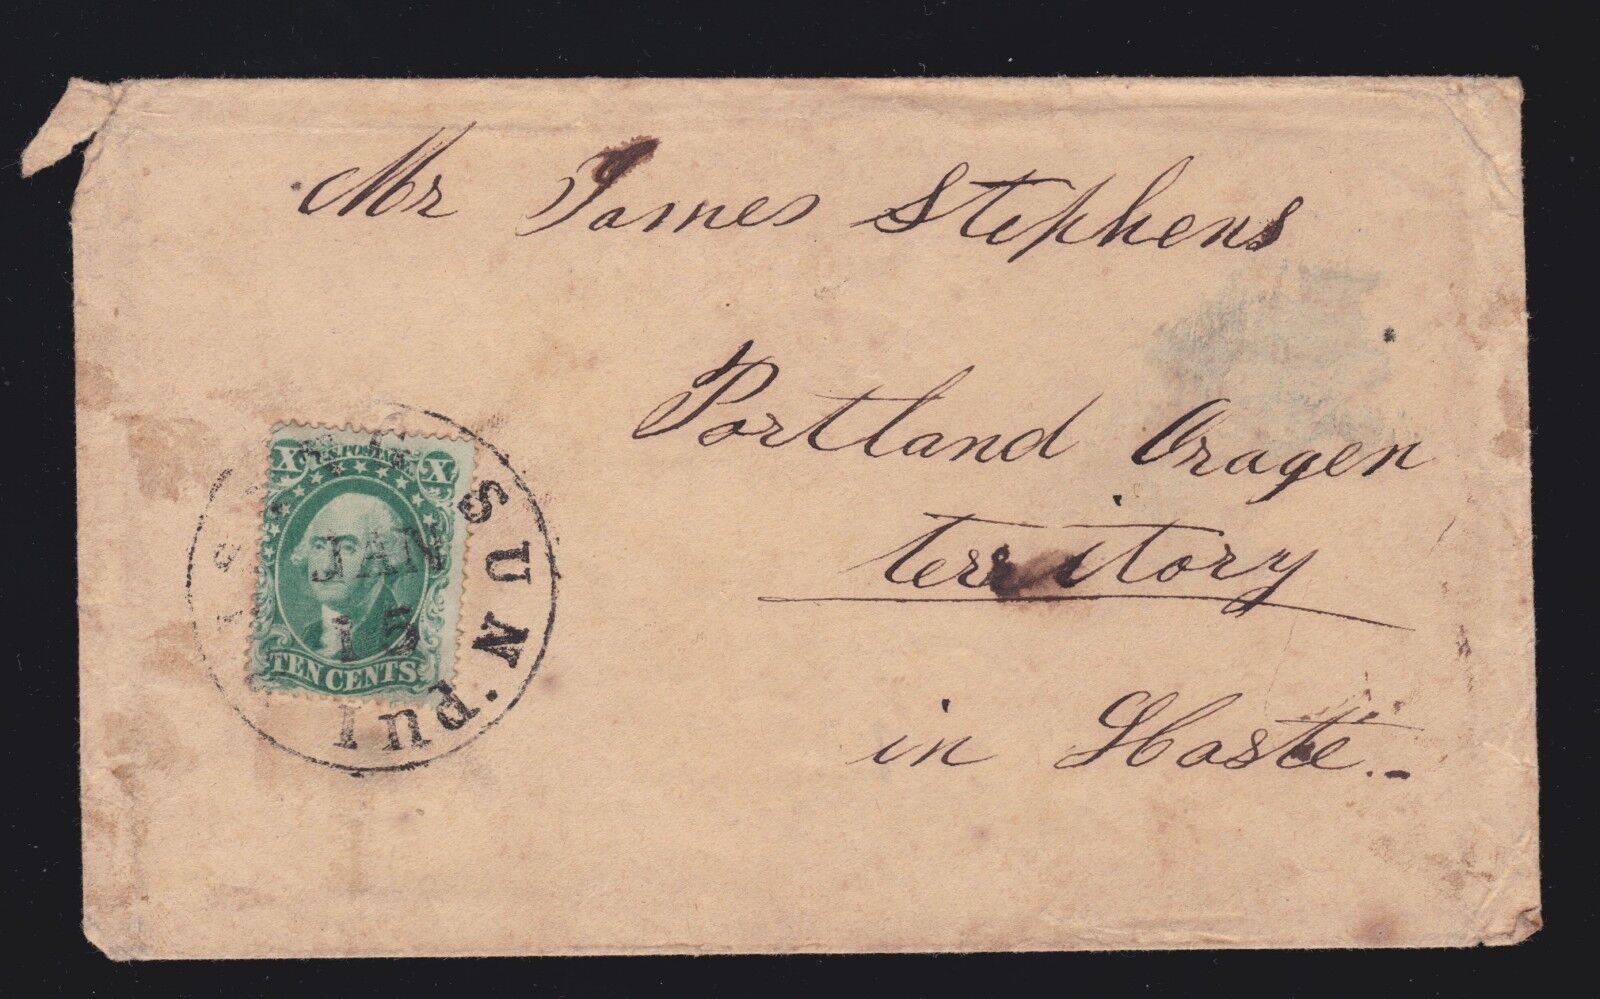 Mr James Stephens
Portland Oragen
territory
in Haste.-
X U.S. POSTAGE. X
JAN
15
TEN CENTS
SUN. PUI